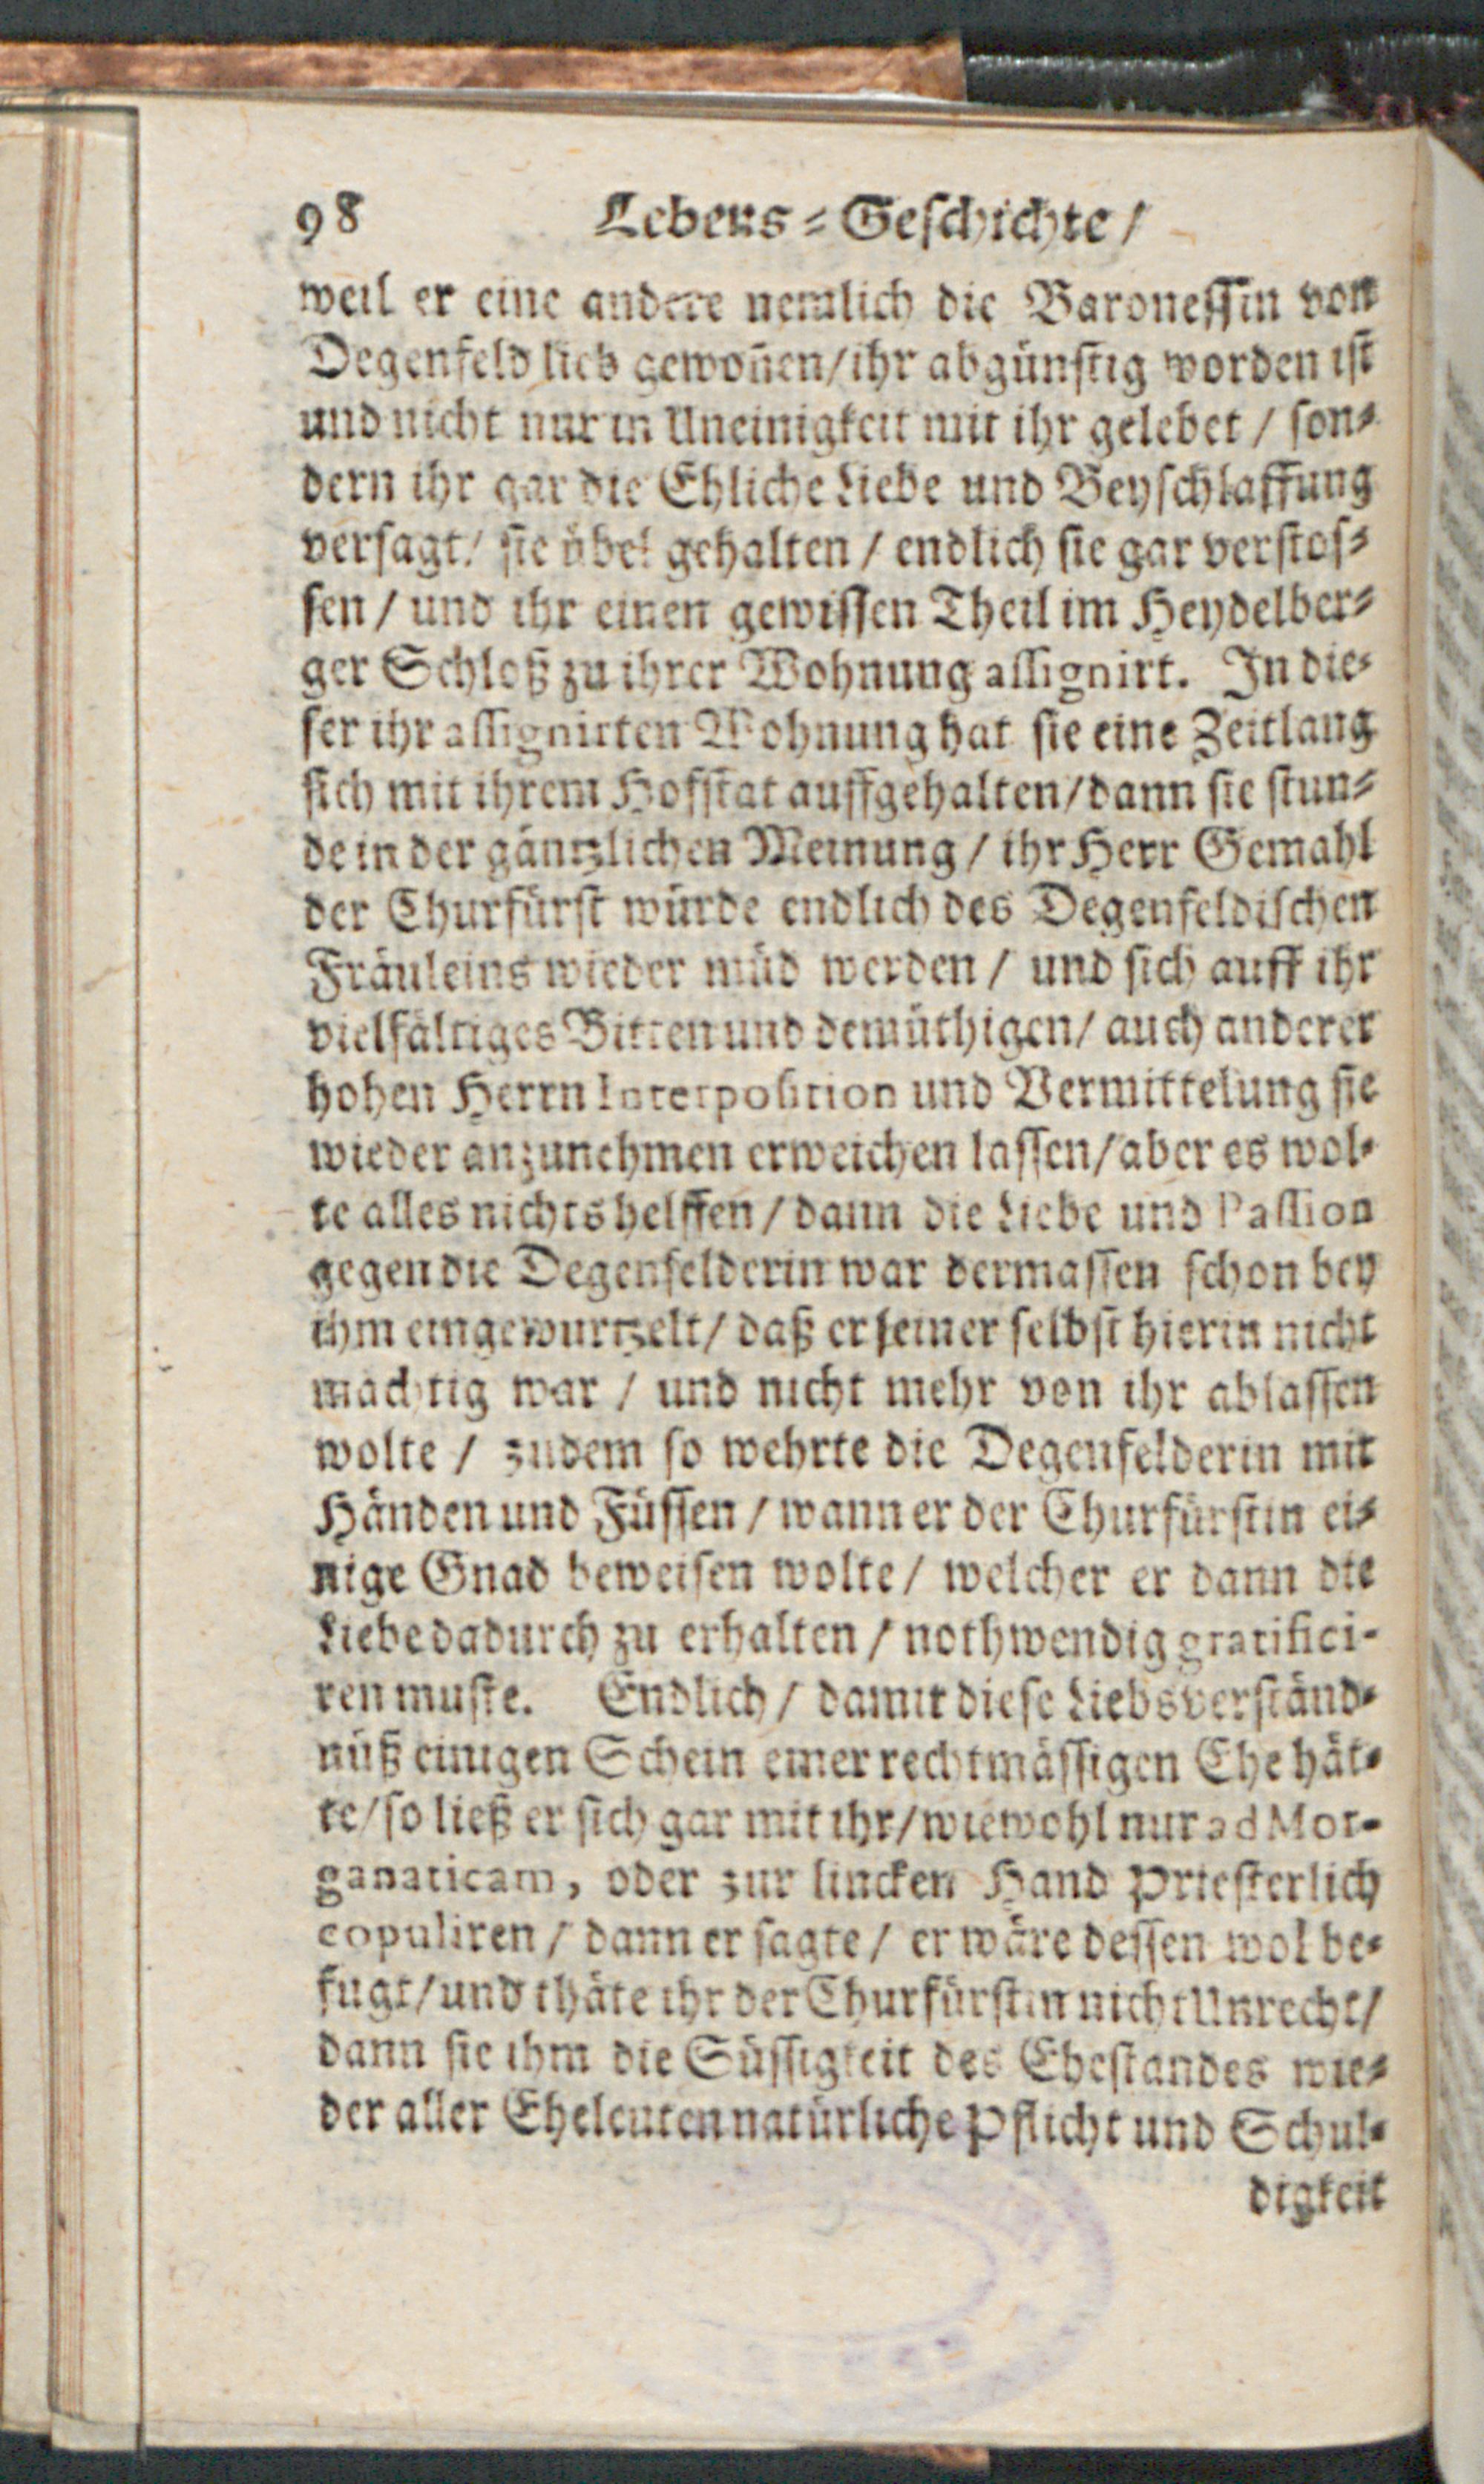 98 Lebens-Geschichte /
weil er eine andere nemlich die Baronessin von
Degenfeld lieb gewoñen / ihr abgünstig worden ist
und nicht nur in Uneinigkeit mit ihr gelebet / son-
dern ihr gar die Ehliche Liebe und Beyschlaffung
versagt / sie übel gehalten / endlich sie gar verstos-
sen / und ihr einen gewissen Theil im Heydelber-
ger Schloß zu ihrer Wohnung assignirt. In die-
ser ihr assignirten Wohnung hat sie eine Zeitlang
sich mit ihrem Hofstat auffgehalten / dann sie stun-
de in der gäntzlichen Meinung / ihr Herr Gemahl
der Churfürst würde endlich des Degenfeldischen
Fräuleins wieder müd werden / und sich auff ihr
vielfältiges Bitten und demüthigen / auch anderer
hohen Herrn Interposition und Vermittelung sie
wieder anzunehmen erweichen lassen / aber es wol-
te alles nichts helffen / dann die Liebe und Passion
gegen die Degenfelderin war dermassen schon bey
ihm eingewurtzelt / daß er seiner selbst hierin nicht
mächtig war / und nicht mehr von ihr ablassen
wolte / zudem so wehrte die Degenfelderin mit
Händen und Füssen / wann er der Churfürstin ei-
nige Gnad beweisen wolte / welcher er dann die
Liebe dadurch zu erhalten / nothwendig gratifici-
ren muste. Endlich / damit diese Liebsverständ-
nüß einigen Schein einer rechtmässigen Ehe hät-
te / so ließ er sich gar mit ihr / wiewohl nur ad Mor-
ganaticam, oder zur lincken Hand Priesterlich
copuliren / dann er sagte / er wäre dessen wol be-
fugt / und thäte ihr der Churfürstin nicht Unrecht /
dann sie ihm die Süssigkeit des Ehestandes wie-
der aller Eheleuten natürliche Pflicht und Schul-
digkeit